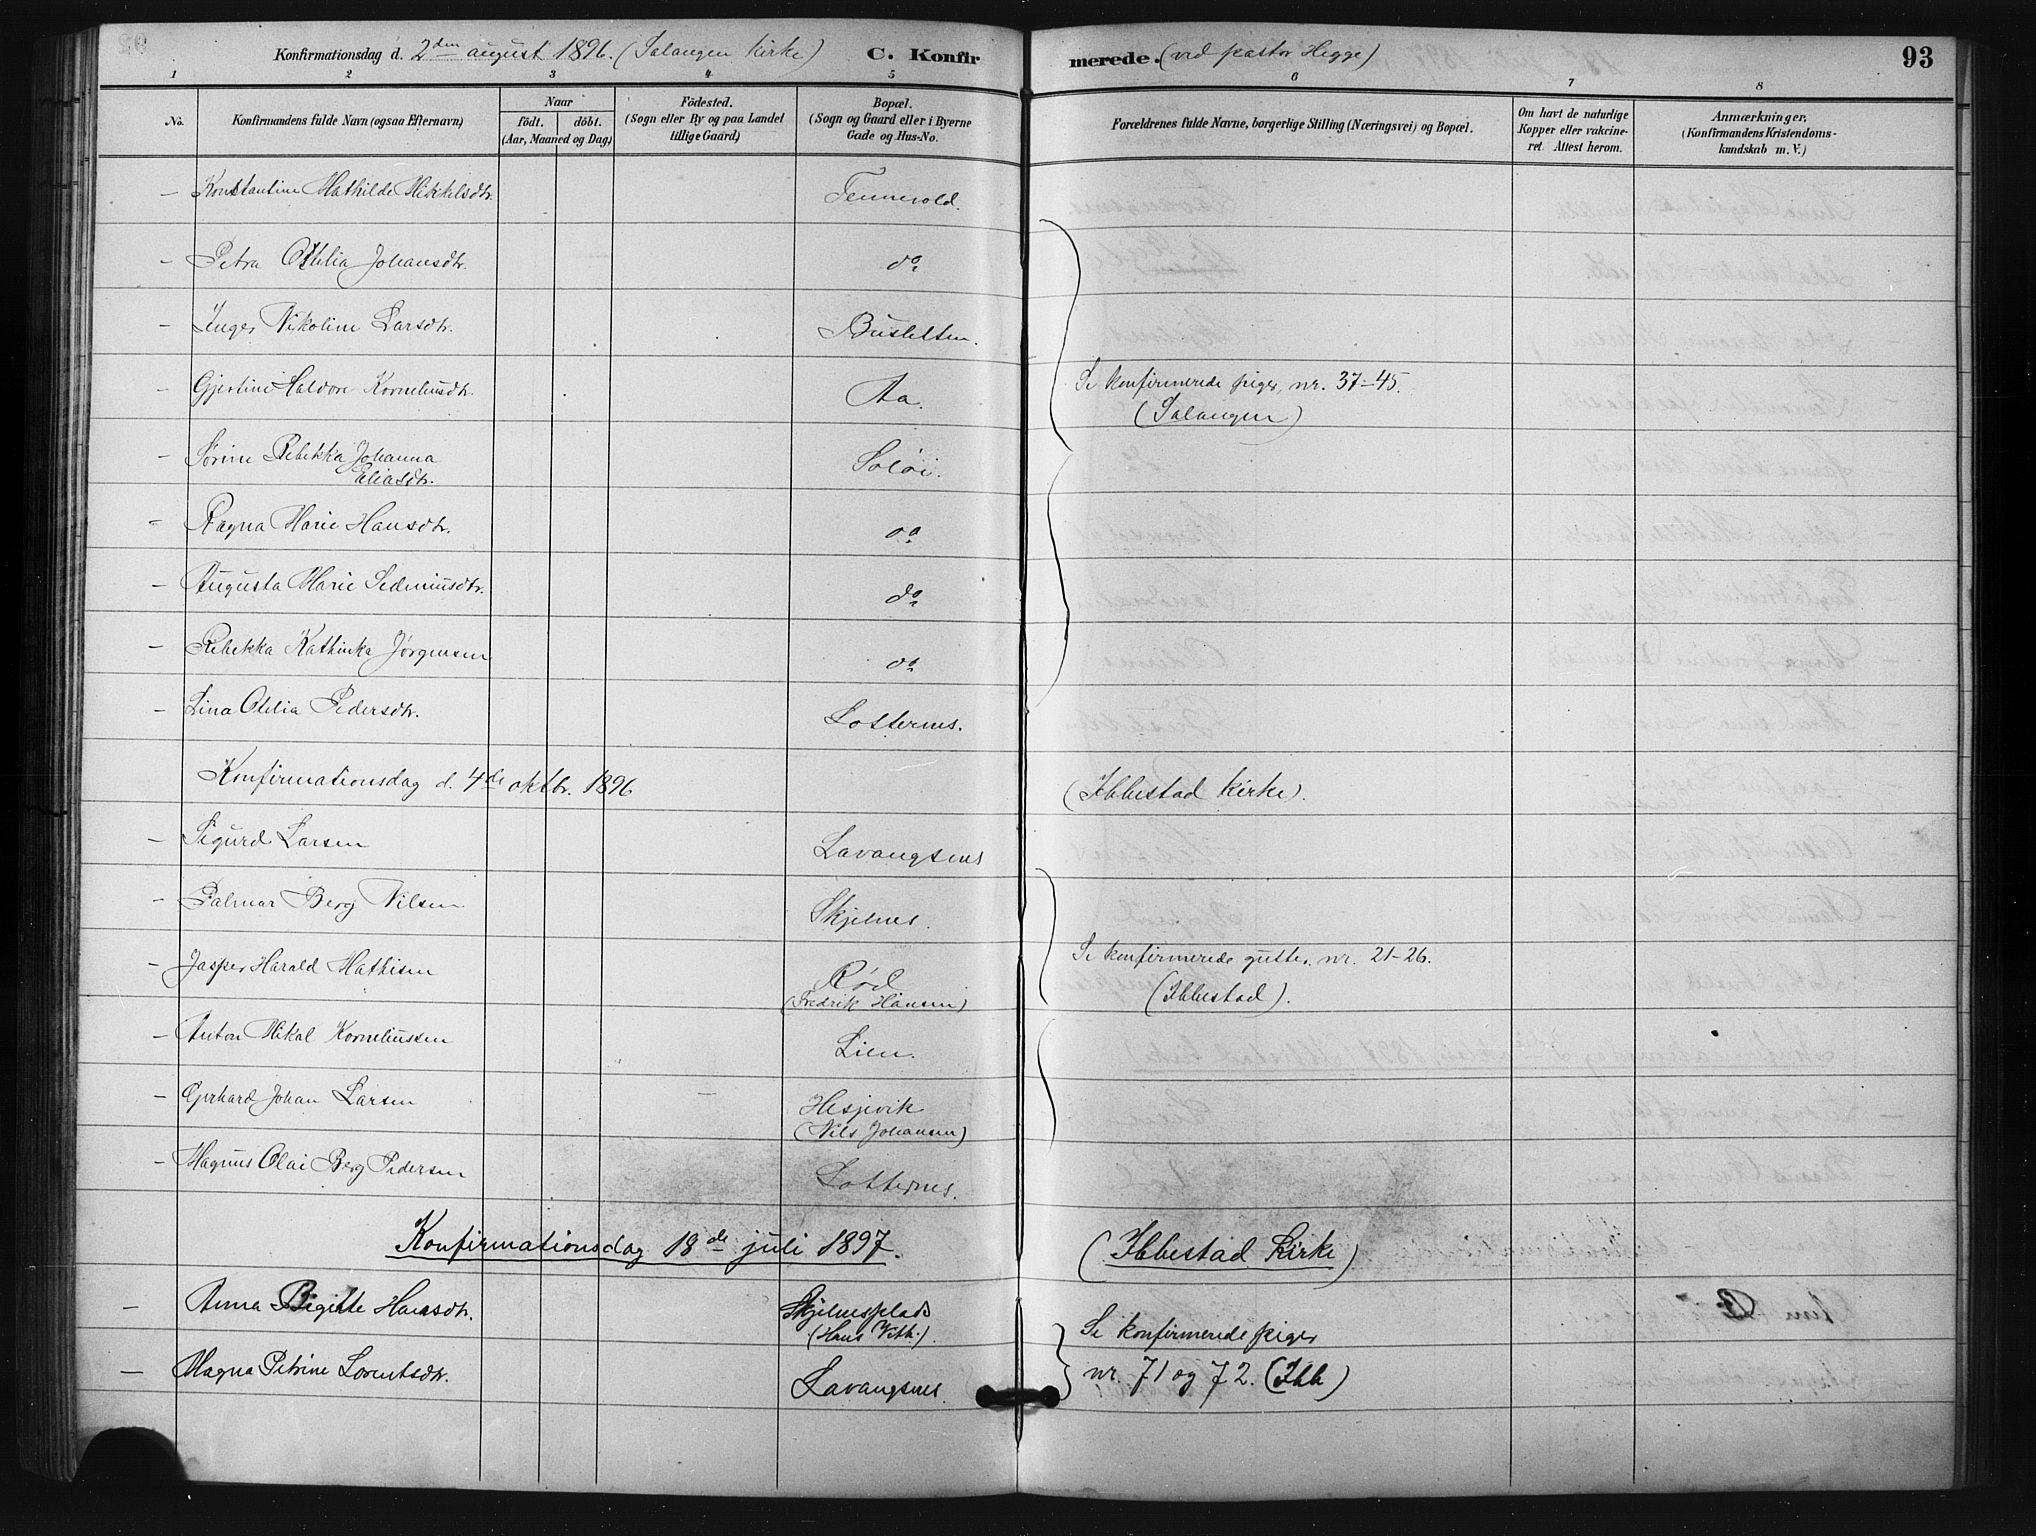 Konfirmationsdag d. 2den august 1896. (Salangen kirke) C. Konfir
merede. (ved pastor Hegge) 93
1 2 3 4 5 6 7 8
No.
Konfirmandens fulde Navn (ogsaa Efternavn)
Naar
födt. döbt.
(Aar, Maaned og Dag)
Födested.
(Sogn eller By og paa Landet
tillige Gaard)
Bopæl.
(Sogn og Gaard eller i Byerne
Gade og Hus-No.
Forældrenes fulde Navne, borgerlige Stilling (Næringsvei) og Bopæl.
Om havt de naturlige
Kopper eller vakcine-
ret. Attest herom.
Anmærkninger.
(Konfirmandens Kristendoms-
kundskab m. V.)
– Konstantine Mathilde Mikkelsdtr. Tennevold.
– Petra Othilia Johansdtr. do
– Inger Nikoline Larsdtr. Busletten.
– Gjertine Haldore Korneliusdtr. Aa.
Se konfirmerede piger, nr. 37–45.
(Salangen)
– Sørine Rebekka Johanna
Eliasdtr. Soløi.
– Ragna Marie Hansdtr. do
– Augusta Marie Sedeniusdtr. do
– Rebekka Kathinka Jørgensen do
– Lina Otelia Pedersdtr. Lotternes.
Konfirmationsdag d. 4de oktbr. 1896 (Ibbestad kirke).
– Sigurd Larsen Lavangsnes
– Palmar Berg Nilsen Skjelnes.
– Jasper Harald Mathisen Rød
(Fredrik Hansen)
Se konfirmerede gutter, nr. 21–26.
(Ibbestad).
– Anton Mikal Korneliussen Lien.
– Gerhard Johan Larsen Hesjevik
(Nils Johansen)
– Magnus Olai Berg Pedersen Lotternes.
Konfirmationsdag 18de juli 1897. (Ibbestad Kirke)
– Anna Birgitte Hansdtr. Skjelnesplads
(Hans Vith.).
Se konfirmerede piger
– Magna Petrine Lorentsdtr. Lavangsnes.
nr. 71 og 72. (Ibb)